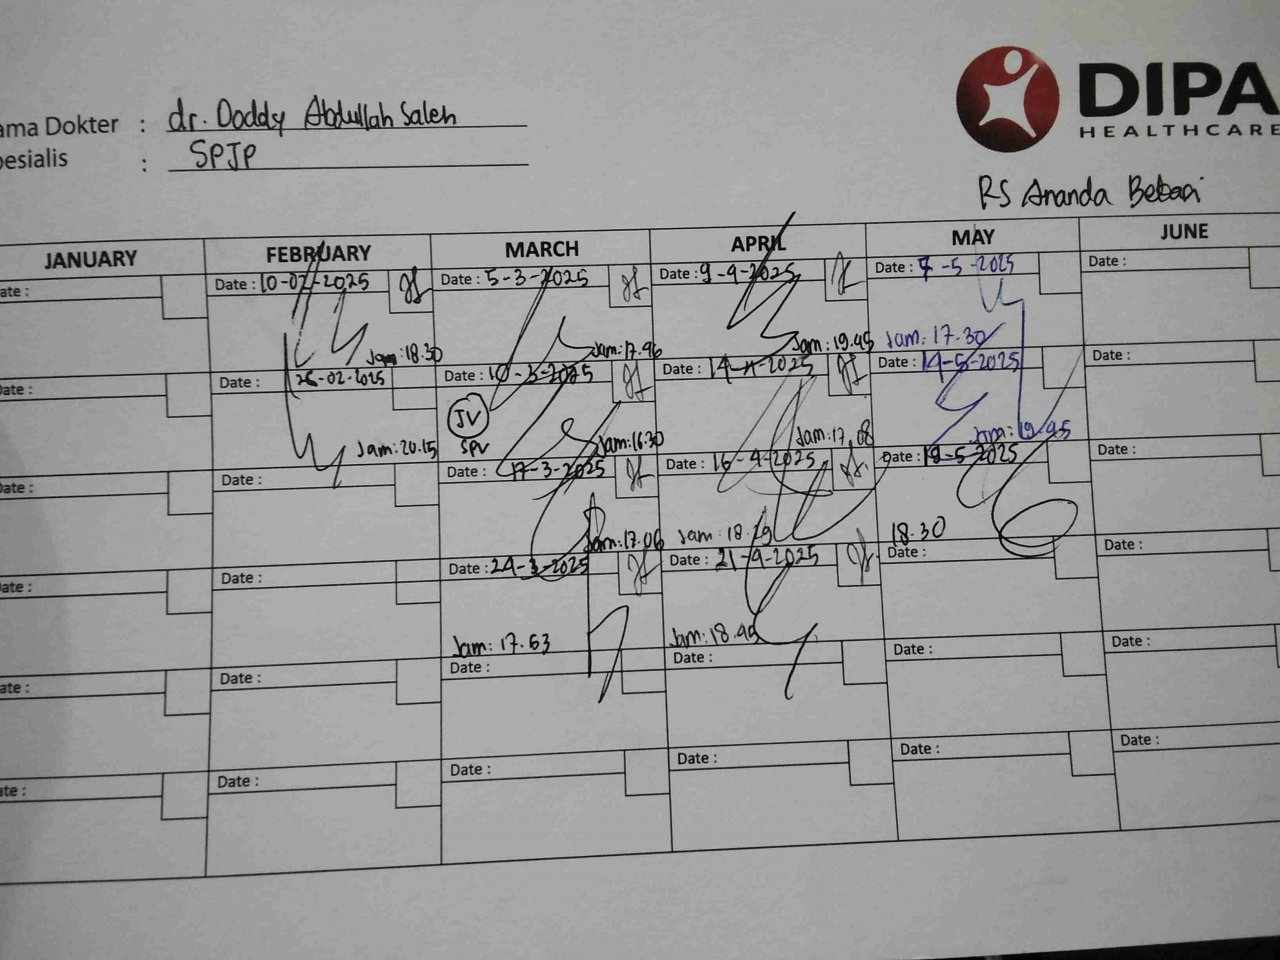 DIPA
HEALTHCARE
ama Dokter : dr. Doddy Abdullah Saleh
pesialis : SPJP
RS Ananda Bekasi
JANUARY FEBRUARY MARCH APRIL MAY JUNE
ate : Date : 10-02-2025 Date : 5-3-2025 Date : 9-4-2025 Date : 7-5-2025 Date :
Jam: 18.30 Jam: 17.46 Jam: 19.45 Jam: 17.30
ate : Date : 26-02-2025 Date : 10-3-2025 Date : 14-4-2025 Date : 14-5-2025 Date :
JV
SPV
Jam: 20.15 Jam: 16.30 Jam: 17.08 Jam: 19.45
ate : Date : Date : 17-3-2025 Date : 16-4-2025 Date : 19-5-2025 Date :
Jam: 17.06 Jam: 18.29 18.30
ate : Date : Date : 24-3-2025 Date : 21-4-2025 Date : Date :
Jam: 17.53 Jam: 18.45
ate : Date : Date : Date : Date : Date :
ate : Date : Date : Date : Date : Date :